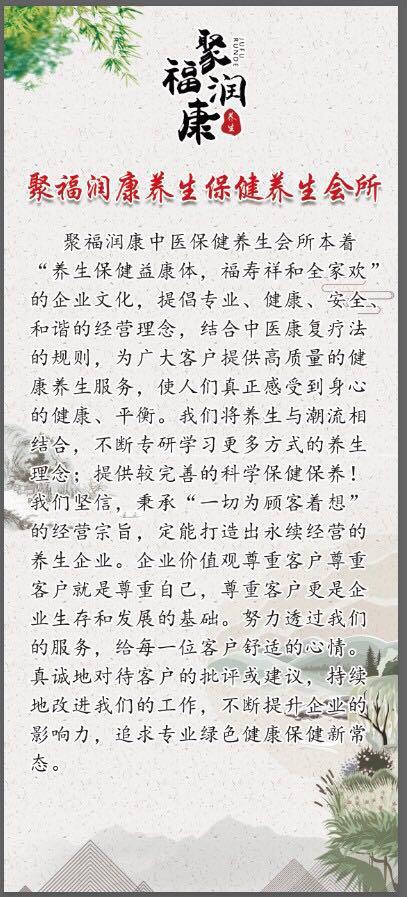 聚福润康
JUFU
RUNDE
养生
聚福润康养生保健养生会所
聚福润康中医保健养生会所本着
“养生保健益康体，福寿祥和全家欢”
的企业文化，提倡专业、健康、安全、
和谐的经营理念，结合中医康复疗法
的规则，为广大客户提供高质量的健
康养生服务，使人们真正感受到身心
的健康、平衡。我们将养生与潮流相
结合，不断专研学习更多方式的养生
理念；提供较完善的科学保健保养！
我们坚信，秉承“一切为顾客着想”
的经营宗旨，定能打造出永续经营的
养生企业。企业价值观尊重客户尊重
客户就是尊重自己，尊重客户更是企
业生存和发展的基础。努力透过我们
的服务，给每一位客户舒适的心情。
真诚地对待客户的批评或建议，持续
地改进我们的工作，不断提升企业的
影响力，追求专业绿色健康保健新常
态。